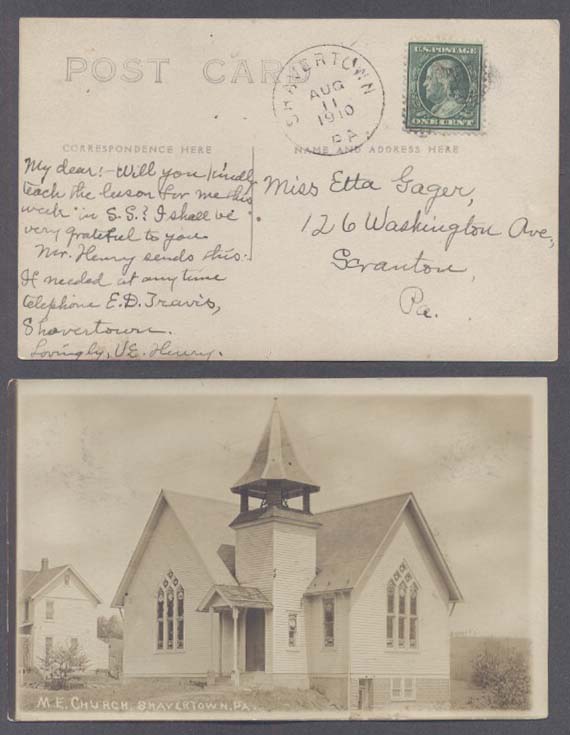 POST CARD
SHAVERTOWN
AUG
11
1910
PA.
U.S. POSTAGE
ONE CENT
CORRESPONDENCE HERE
NAME AND ADDRESS HERE
My dear:- Will you kindly
teach the lesson for me this
week in S.S.? I shall be
very grateful to you.
Mr. Henry sends this.
If needed at any time
telephone E.D. Travis,
Shavertown.
Lovingly, V.E. Henry.
Miss Etta Gager,
126 Washington Ave,
Scranton,
Pa.
M.E. CHURCH, SHAVERTOWN, PA.